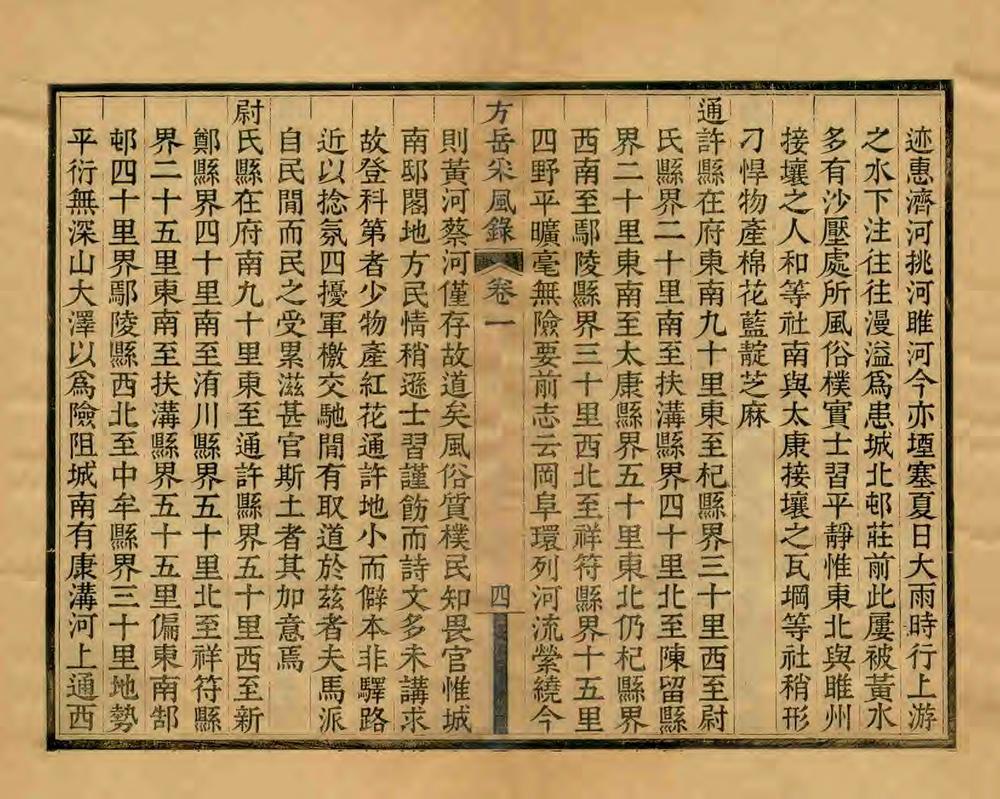 迹惠濟河挑河睢河今亦堙塞夏日大雨時行上游
之水下注往往漫溢爲患城北邨莊前此屢被黃水
多有沙壓處所風俗樸實士習平靜惟東北與睢州
接壤之人和等社南與太康接壤之瓦堈等社稍形
刁悍物產棉花藍靛芝麻
通許縣在府東南九十里東至杞縣界三十里西至尉
氏縣界二十里南至扶溝縣界四十里北至陳留縣
界二十里東南至太康縣界五十里東北仍杞縣界
西南至鄢陵縣界三十里西北至祥符縣界十五里
四野平曠毫無險要前志云岡阜環列河流縈繞今
方岳采風錄 卷一 四
則黃河蔡河僅存故道矣風俗質樸民知畏官惟城
南邸閣地方民情稍遜士習謹飭而詩文多未講求
故登科第者少物產紅花通許地小而僻本非驛路
近以捻氛四擾軍檄交馳閒有取道於茲者夫馬派
自民閒而民之受累滋甚官斯土者其加意焉
尉氏縣在府南九十里東至通許縣界五十里西至新
鄭縣界四十里南至洧川縣界五十里北至祥符縣
界二十五里東南至扶溝縣界五十五里偏東南郜
邨四十里界鄢陵縣西北至中牟縣界三十里地勢
平衍無深山大澤以爲險阻城南有康溝河上通西